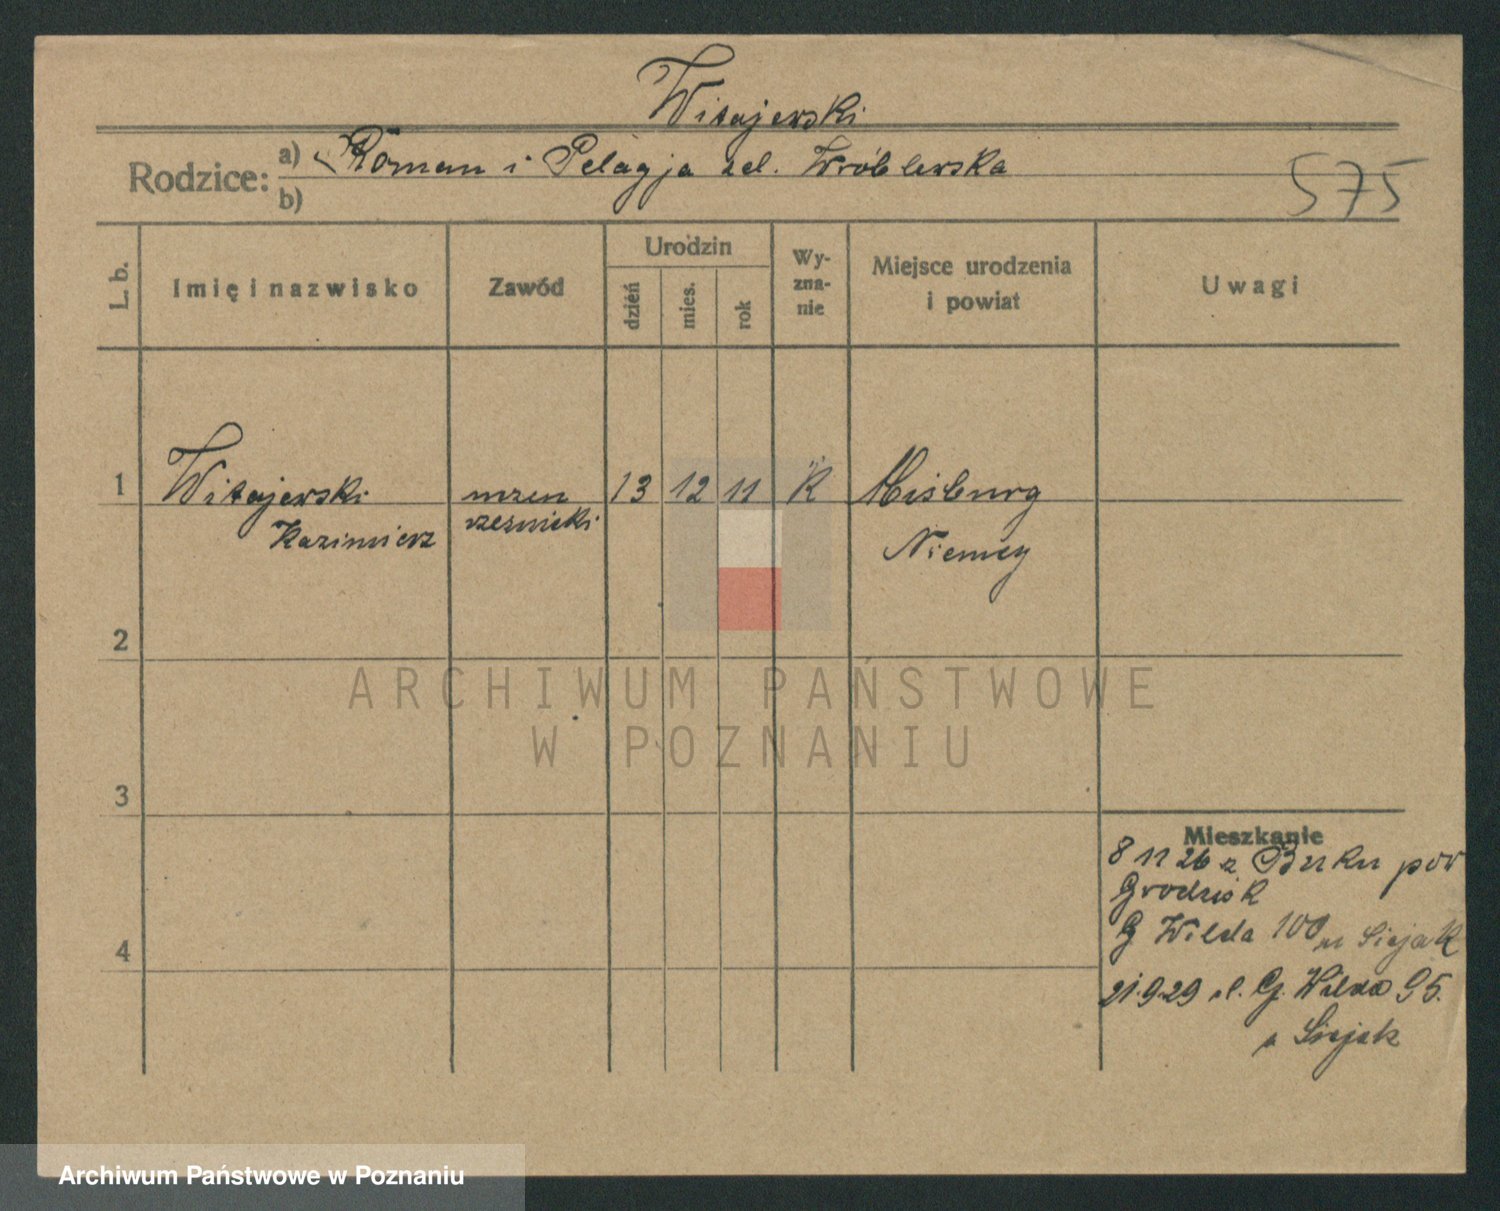 Witajewski
Rodzice: a) Roman i Pelagja zd. Wróblewska
b)
575
L. b.
Imię i nazwisko
Zawód
Urodzin
dzień
mies.
rok
Wy-
zna-
nie
Miejsce urodzenia
i powiat
Uwagi
1 Witajewski 13 12 11 K Misburg
Kazimierz rzeźnicki Niemcy
2
ARCHIWUM PAŃSTWOWE
W POZNANIU
3
Mieszkanie
8 11 26 z Buku pow
Grodzisk
4
G Wilda 100 u Siejak
21.9.29 G. Wilda 95.
Siejak
Archiwum Państwowe w Poznaniu